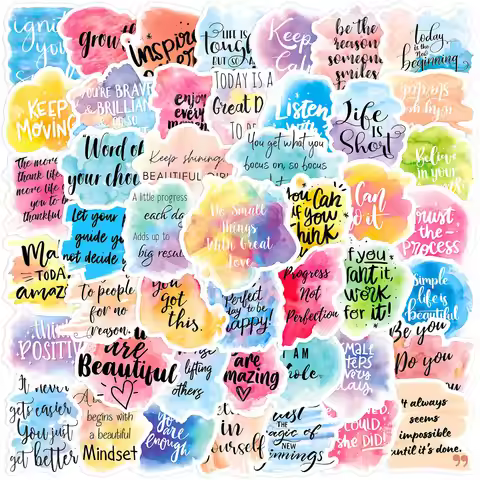 grow
inspire
LIFE IS
tough
BUT SO
Keep
be the
reason
someone
smiles
today
is the New
beginning
KEEP
MOVING
YOU'RE BRAVE
& BRILLIANT
enjoy
every
TODAY IS A
Great D
TO BE
Listen
Life
is
Short
Believe
in your
the more
thank life
more life
you to b
thankful
Word of
your
Keep shining
BEAUTIFUL GIRL
You get what you
focus on, so focus
A little progress
each day
Adds up to
big resul
Do Small
Things
With Great
Love
You Can
if You
Think
Can
do it
trust
the
PROCESS
Let your
guide yo
not decide
Ma
TODAY
amaz
To people
for no
reason.
You
got
this.
Perfect
day to be
happy!
Progress
Not
Perfection
if you
want it,
work
for it!
Simple
life is
beautiful
POSITIV
are
Beautiful
lifting
others
are
amazing
I AM
whole
small
steps
every
day
Be you
Do you
It never
gets easier
You just
get better
begins with
a beautiful
Mindset
You are
enough
in
yourself
trust
the
magic of
new
she DID!
It always
seems
impossible
until it's done.